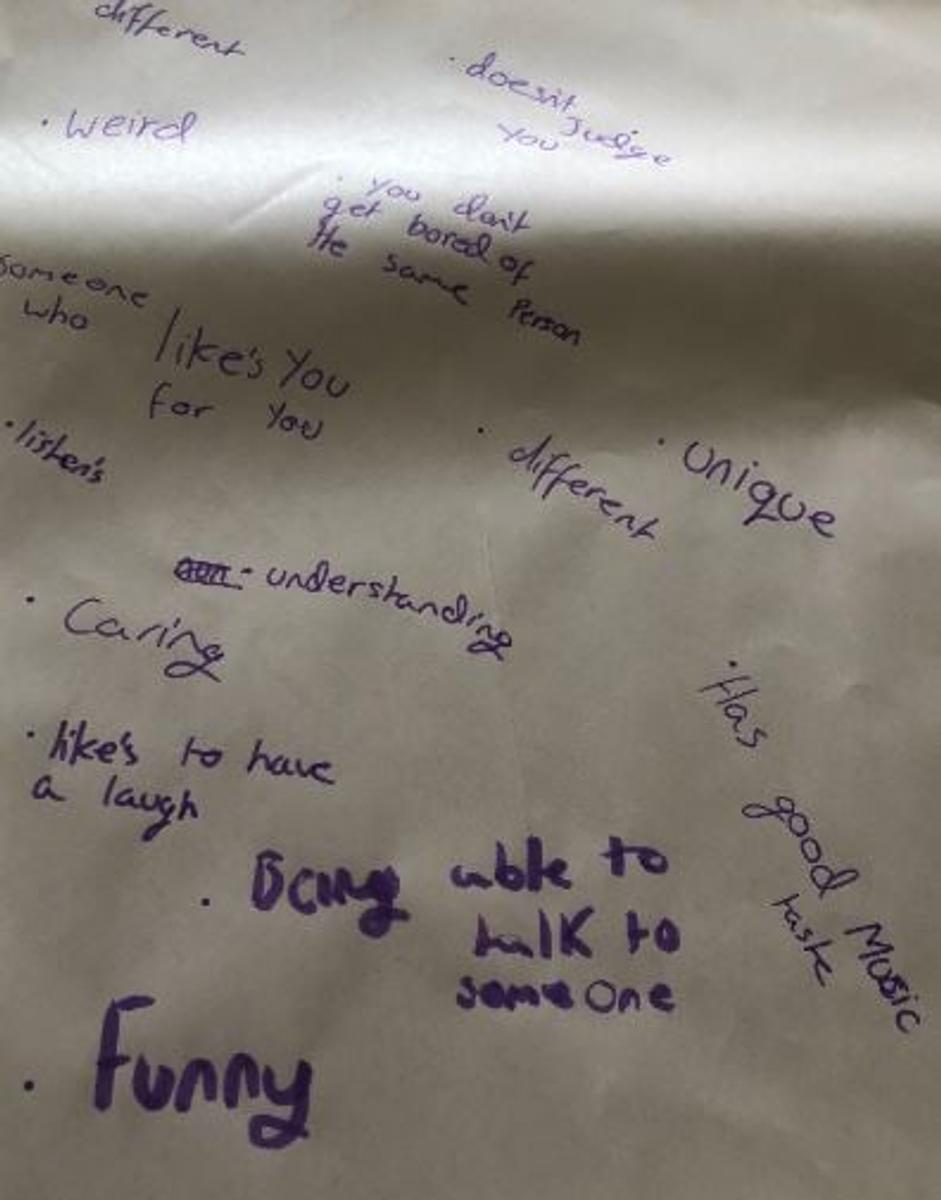 different
· doesn't
Judge
you
· weird
· you don't
get bored of
the same Person
someone
who like's You
for You
· listen's
· different
· unique
· understanding
· Caring
· Has
good Music
taste
· like's to have
a laugh
· Being able to
talk to
someone
· Funny